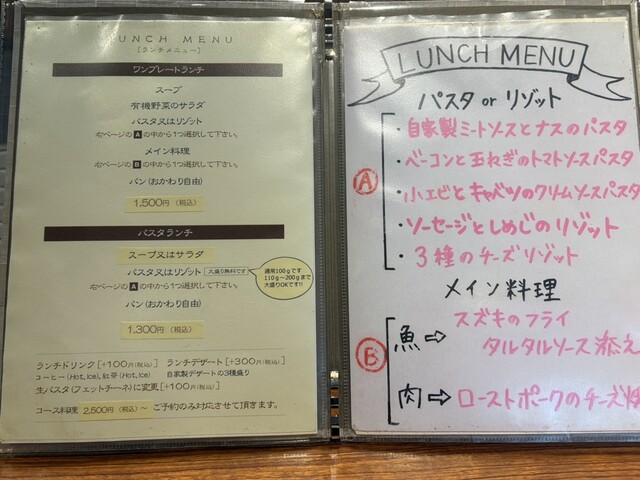 LUNCH MENU
[ランチメニュー]
ワンプレートランチ
スープ
有機野菜のサラダ
パスタ又はリゾット
右ページのAの中から1つ選択して下さい。
メイン料理
右ページのBの中から1つ選択して下さい。
パン(おかわり自由)
1,500円(税込)
パスタランチ
スープ又はサラダ
パスタ又はリゾット 大盛り無料です
右ページのAの中から1つ選択して下さい。
通常100gです
110g~200gまで
大盛りOKです!!
パン(おかわり自由)
1,300円(税込)
ランチドリンク[+100円(税込)] ランチデザート[+300円(税込)]
コーヒー(Hot,Ice),紅茶(Hot,Ice) 自家製デザートの3種盛り
生パスタ(フェットチーネ)に変更[+100円(税込)]
コース料理 2,500円(税込)~ ご予約のみ対応させて頂きます。
LUNCH MENU
パスタ or リゾット
A
・自家製ミートソースとナスのパスタ
・ベーコンと玉ねぎのトマトソースパスタ
・小エビとキャベツのクリームソースパスタ
・ソーセージとしめじのリゾット
・3種のチーズリゾット
メイン料理
B
魚⇨ スズキのフライ
タルタルソース添え
肉⇨ ローストポークのチーズ焼